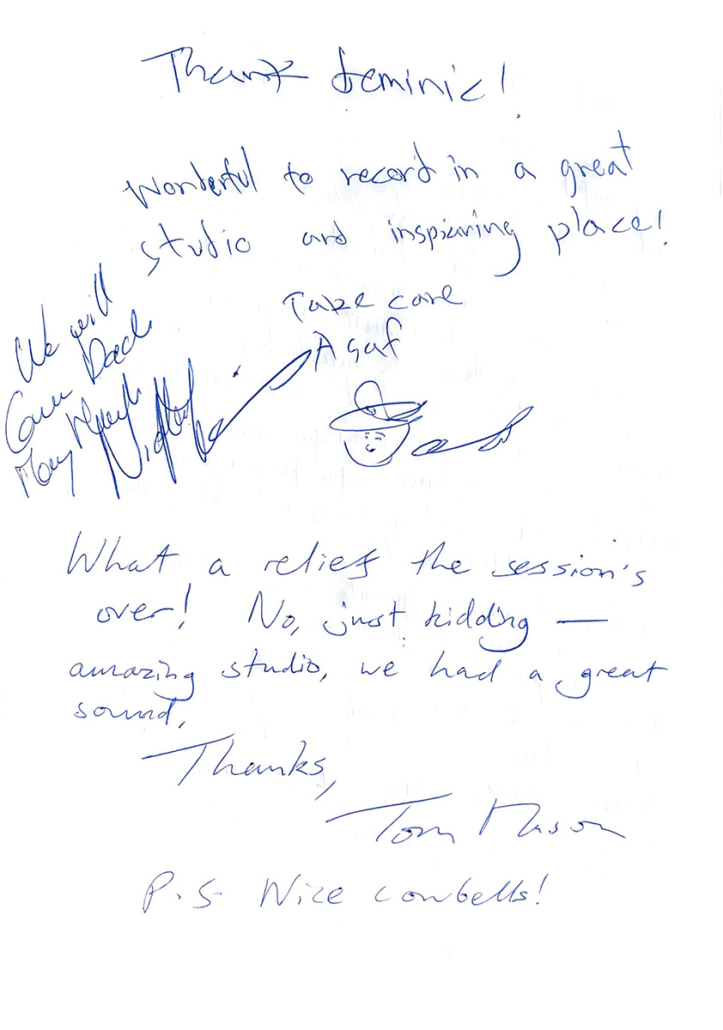 Thank Geminic!
Wonderful to record in a great
studio and inspiering place!
Take care
Asaf
We will
Come Back
Many
What a relief the session's
over! No, just kidding —
amazing studio, we had a great
sound,
Thanks,
Tom Mason
P.S. Nice cowbells!